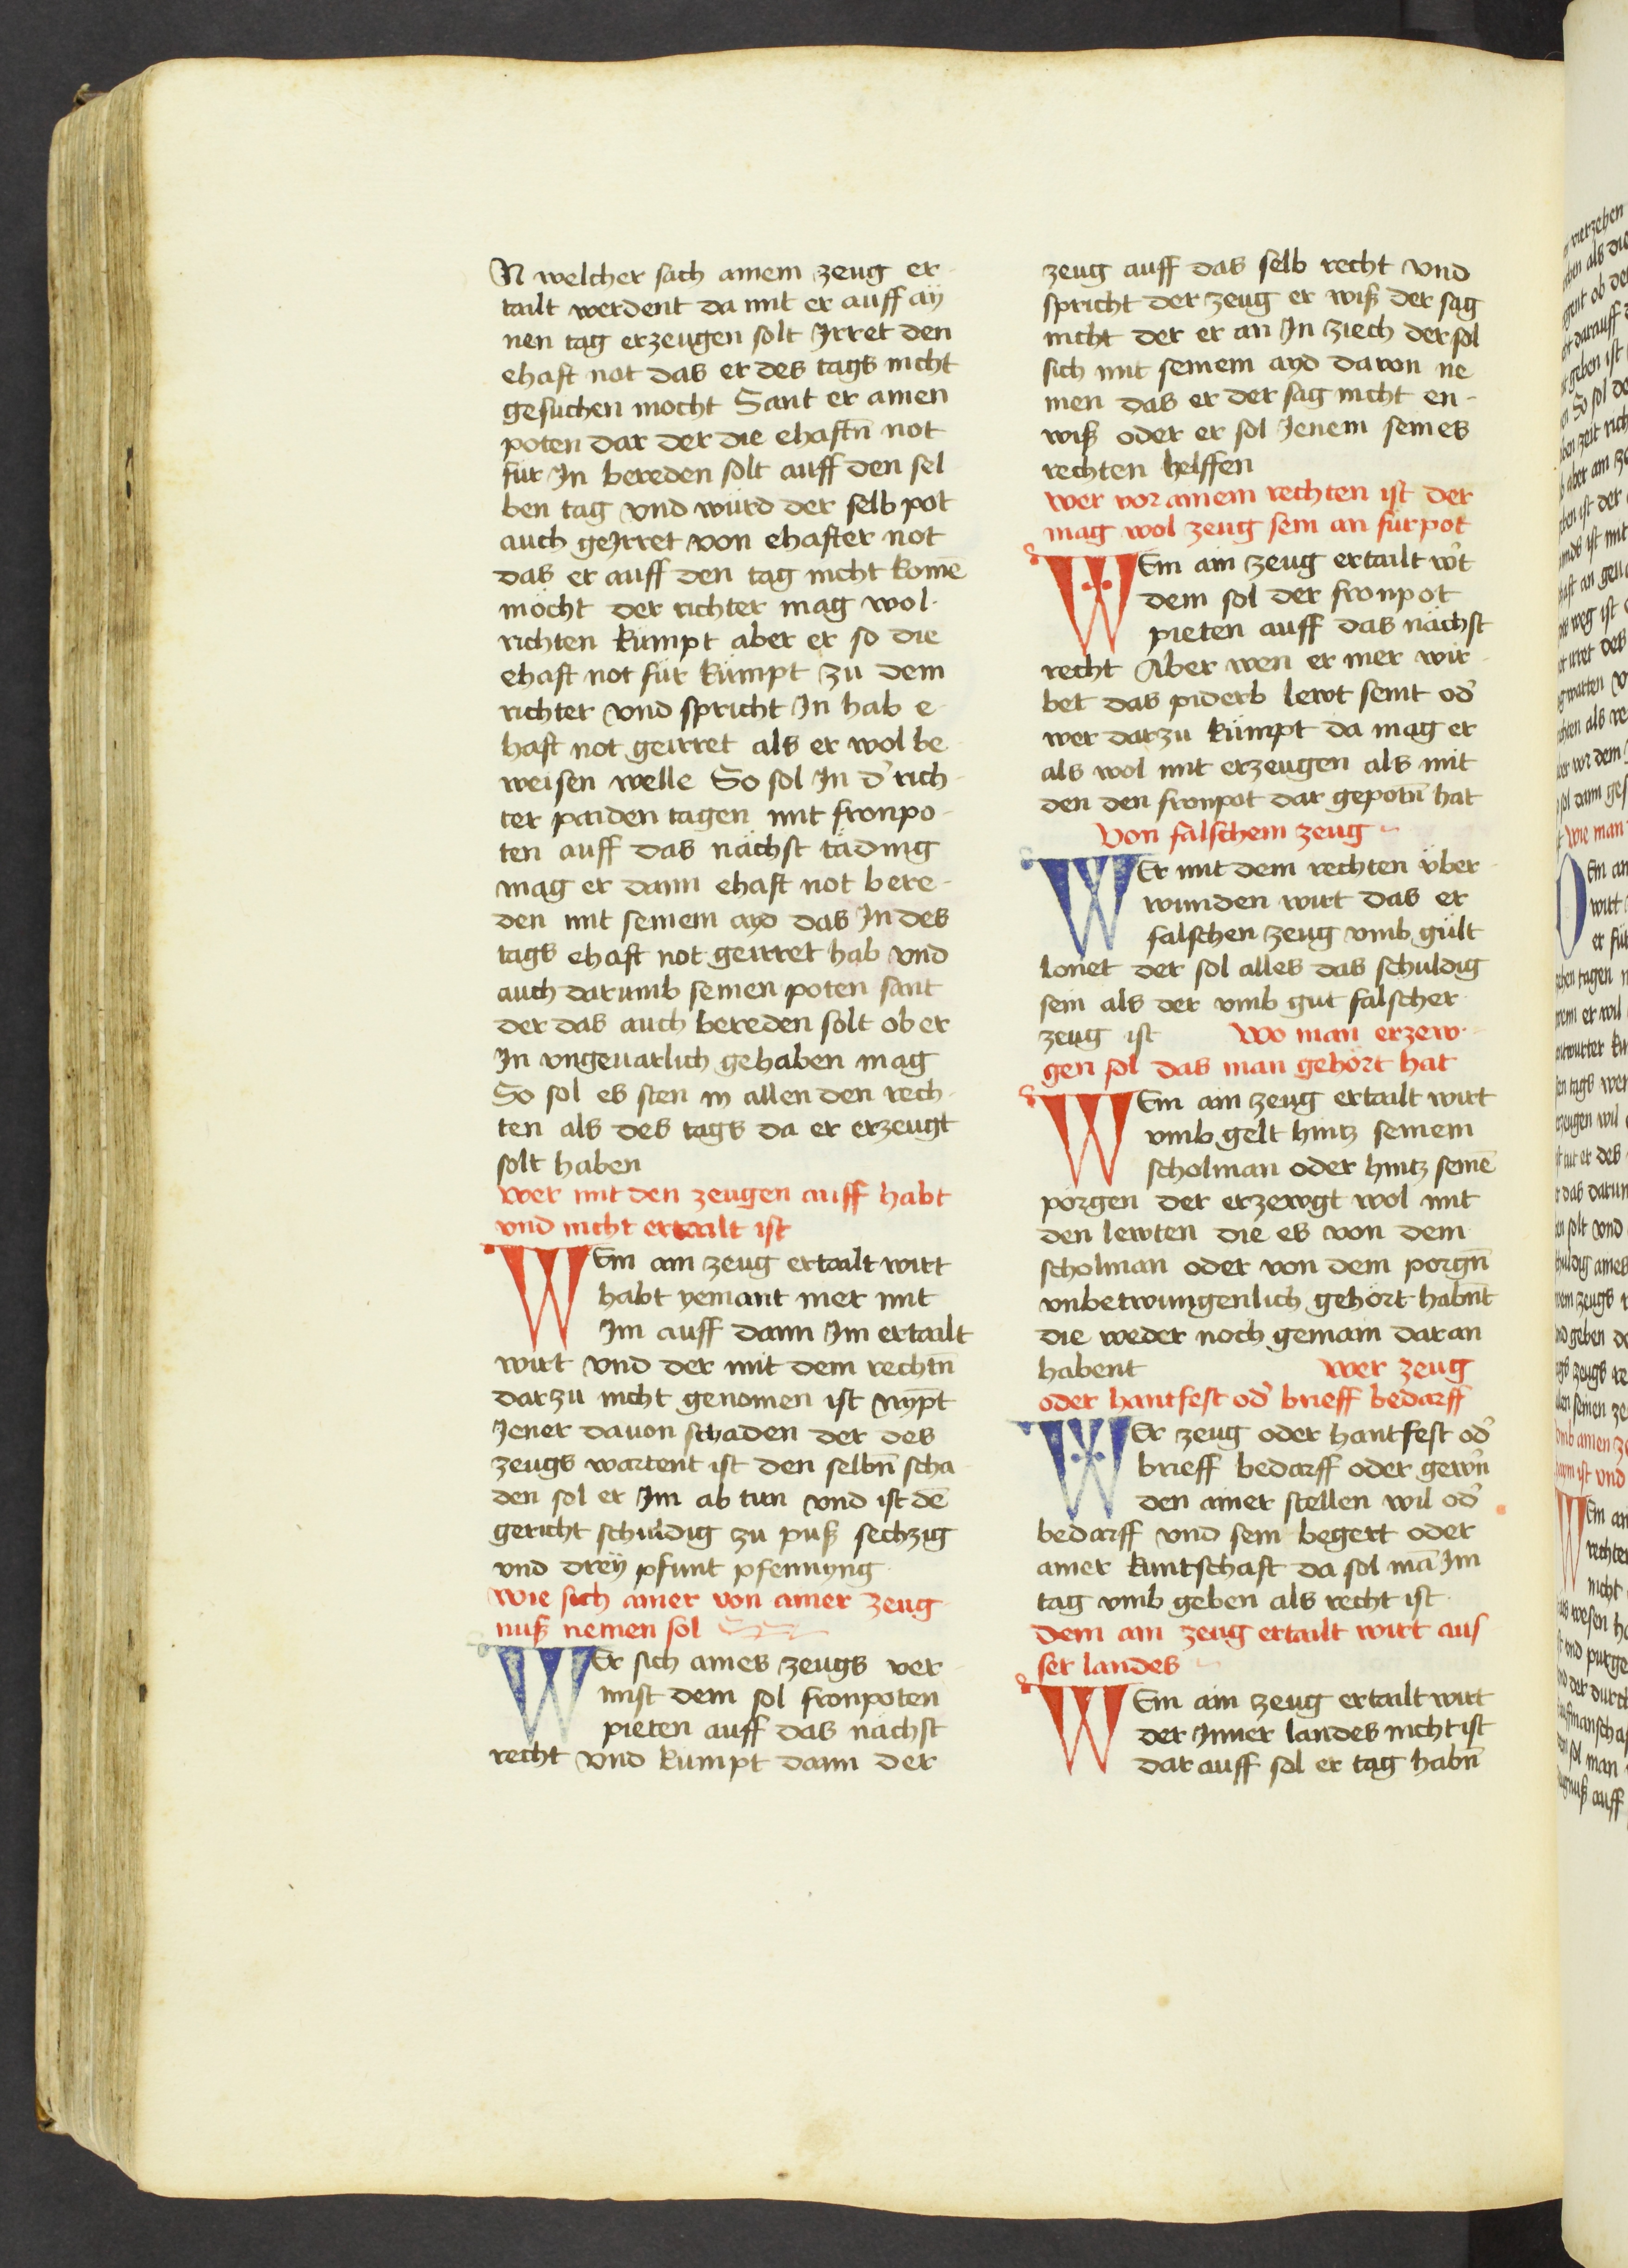 N welcher sach ainem zeug er-
tailt werdent da mit er auff aÿ
nen tag erzeugen solt Irret den
ehaft not das er des tags nicht
gesuchen mocht Sant er ainen
poten dar der die ehaftn̄ not
für In bereden solt auff den sel
ben tag vnd würd der selb pot
auch geIrret von ehafter not
das er auff den tag nicht komē
möcht der richter mag wol
richten kümpt aber er so die
ehaft not für kümpt zu dem
richter vnd spricht In hab e-
haft not geirret als er wol be
weisen welle So sol In d' rich-
ter paiden tagen mit fronpo-
ten auff das nächst täding
mag er dann ehaft not bere-
den mit seinem ayd das In des
tags ehaft not geirret hab vnd
auch darumb seinen poten sant
der das auch bereden solt ob er
In vngeuarlich gehaben mag
So sol es sten in allen den rech-
ten als des tags da er erzeugt
solt haben
wer mit den zeugen auff habt
vnd nicht ertailt ist
WEm ain zeug ertailt wirt
habt yemant mer mit
Im auff dann Im ertailt
wirt vnd der mit dem rechtn̄
darzu nicht genomen ist nympt
Jener dauon schaden der des
zeugs wartent ist den selbn̄ scha-
den sol er Im ab tun vnd ist dē
gericht schuldig zu puß sechzig
vnd dreÿ pfunt pfennyng
wie sich ainer von ainer zeug
nuß nemen sol
WEr sich aines zeugs ver-
mist dem sol fronpoten
pieten auff das nächst
recht vnd kumpt dann der
zeug auff das selb recht vnd
spricht der zeug er wiß der sag
nicht der er an In ziech der sol
sich mit seinem ayd davon ne
men das er der sag nicht en-
wiß oder er sol Jenem seines
rechten helffen
wer vor ainem rechten ist der
mag wol zeug sein an fürpot
WEm ain zeug ertailt w't
dem sol der fronpot
pieten auff das nächst
recht Aber wen er mer wir-
bet das piderb lewt seint od'
wer darzu kümpt da mag er
als wol mit erzeugen als mit
den den fronpot dar gepotn̄ hat
Von falschem zeug
WEr mit dem rechten über-
wunden wirt das er
falschen zeug vmb gült
lonet der sol alles das schuldig
sein als der vmb gut falscher
zeug ist Wo man erzew-
gen sol das man gehört hat
WEm ain zeug ertailt wirt
vmb gelt hintz seinem
scholman oder hintz seinē
porgen der erzewgt wol mit
den lewten die es von dem
scholman oder von dem porgn̄
vnbetwungenlich gehört habn̄t
die weder noch gemain daran
habent wer zeug
oder hantfest od' brieff bedarff
WEr zeug oder hantfest od'
brieff bedarff oder gew'n
den ainer stellen wil od'
bedarff vnd sein begert oder
ainer kuntschaft da sol mā Im
tag vmb geben als recht ist
dem ain zeug ertailt wirt aus
ser landes
WEm ain zeug ertailt wirt
der Inner landes nicht ist
dar auff sol er tag habn̄